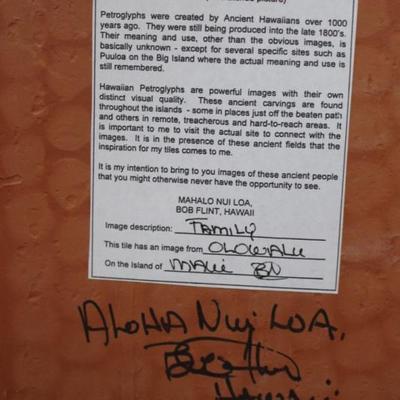 Petroglyphs were created by Ancient Hawaiians over 1000
years ago. They were still being produced into the late 1800's.
Their meaning and use, other than the obvious images, is
basically unknown - except for several specific sites such as
Puuloa on the Big Island where the actual meaning and use is
still remembered.
Hawaiian Petroglyphs are powerful images with their own
distinct visual quality. These ancient carvings are found
throughout the islands - some in places just off the beaten path
and others in remote, treacherous and hard-to-reach areas. It
is important to me to visit the actual site to connect with the
images. It is in the presence of these ancient fields that the
inspiration for my tiles comes to me.
It is my intention to bring to you images of these ancient people
that you might otherwise never have the opportunity to see.
MAHALO NUI LOA,
BOB FLINT, HAWAII
Image description: FAMILY
This tile has an image from OLOWALU
On the Island of MAUI
ALOHA NUI LOA,
Bob Flint
Hawaii